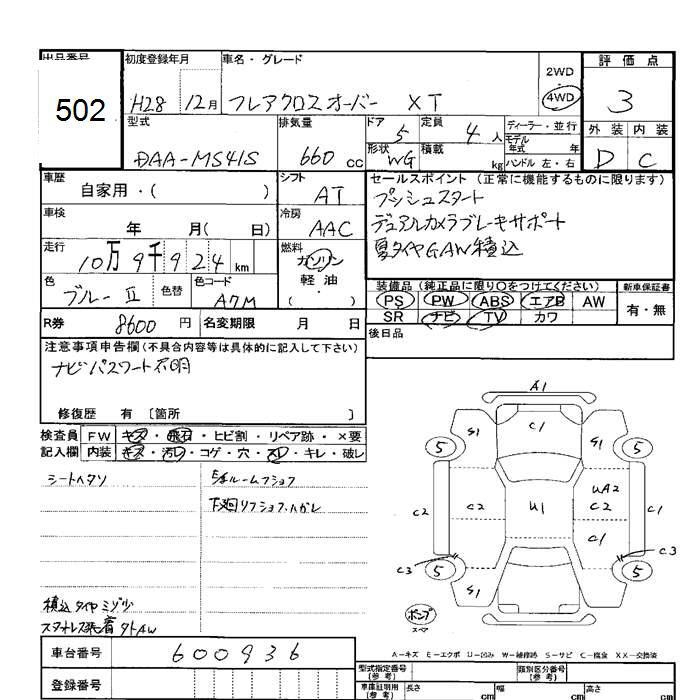 出品番号 502
初度登録年月 H28 12月
車名・グレード フレアクロスオーバー XT
2WD
4WD
評価点 3
型式 DAA-MS41S
排気量 660 cc
ドア 5
定員 4 人
形状 WG
積載 kg
ディーラー・並行
モデル年式 年
ハンドル 左・右
外装 内装
D C
車歴 自家用・( )
シフト AT
セールスポイント(正常に機能するものに限ります)
プッシュスタート
デュアルカメラブレーキサポート
夏タイヤGAW積込
車検 年 月( 日)
冷房 AAC
走行 10万9千924 km
燃料 ガソリン
軽油
( )
色 ブルーⅡ
色替
色コード A7M
装備品(純正品に限り○をつけてください)
新車保証書
PS PW ABS エアB AW
SR ナビ TV カワ
有・無
R券 8600 円
名変期限 月 日
後日品
注意事項申告欄(不具合内容等は具体的に記入して下さい)
ナビパスワード不明
修復歴 有 〔箇所 〕
検査員 FW キズ・飛石・ヒビ割・リペア跡・×要
記入欄 内装 キズ・汚レ・コゲ・穴・スレ・キレ・破レ
シートヘタリ
下廻
積込タイヤミゾ
スタットレス装着
A1
S1 C1 S1
5 5
UA2
C2 C2 U1 C2 C1
C1
C3 C3
5 5
S1
ポンプ
スペア
A-キズ E-エクボ U-凹み W-補修跡 S-サビ C-腐食 XX-交換済
車台番号 600936
登録番号
型式指定番号(参考)
類別区分番号(参考)
車庫証明用(参考) 長さ cm 幅 cm 高さ cm